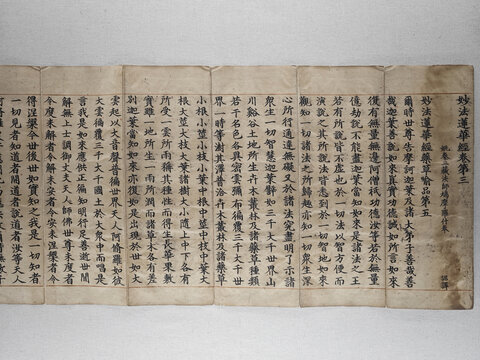 妙法蓮華經卷第三
姚秦三藏法師鳩摩羅什奉 詔譯
妙法蓮華經藥草喻品第五
爾時世尊告摩訶迦葉及諸大弟子善哉善
哉迦葉善說如來真實功德誠如所言如來
復有無量無邊阿僧祇功德汝等若於無量
億劫說不能盡迦葉當知如來是諸法之王
若有所說皆不虛也於一切法以智方便而
演說之其所說法皆悉到於一切智地如來
觀知一切諸法之所歸趣亦知一切眾生深
心所行通達無礙又於諸法究盡明了示諸
眾生一切智慧迦葉譬如三千大千世界山
川谿谷土地所生卉木叢林及諸藥草種類
若干名色各異密雲彌布徧覆三千大千世
界一時等澍其澤普洽卉木叢林及諸藥草
小根小莖小枝小葉中根中莖中枝中葉大
根大莖大枝大葉諸樹大小隨上中下各有
所受一雲所雨稱其種性而得生長華果敷
實雖一地所生一雨所潤而諸草木各有差
別迦葉當知如來亦復如是出現於世如大
雲起以大音聲普徧世界天人阿修羅如彼
大雲徧覆三千大千國土於大眾中而唱是
言我是如來應供正徧知明行足善逝世間
解無上士調御丈夫天人師佛世尊未度者
令度未解者令解未安者令安未涅槃者令
得涅槃今世後世如實知之我是一切知者
一切見者知道者開道者說道者汝等天人